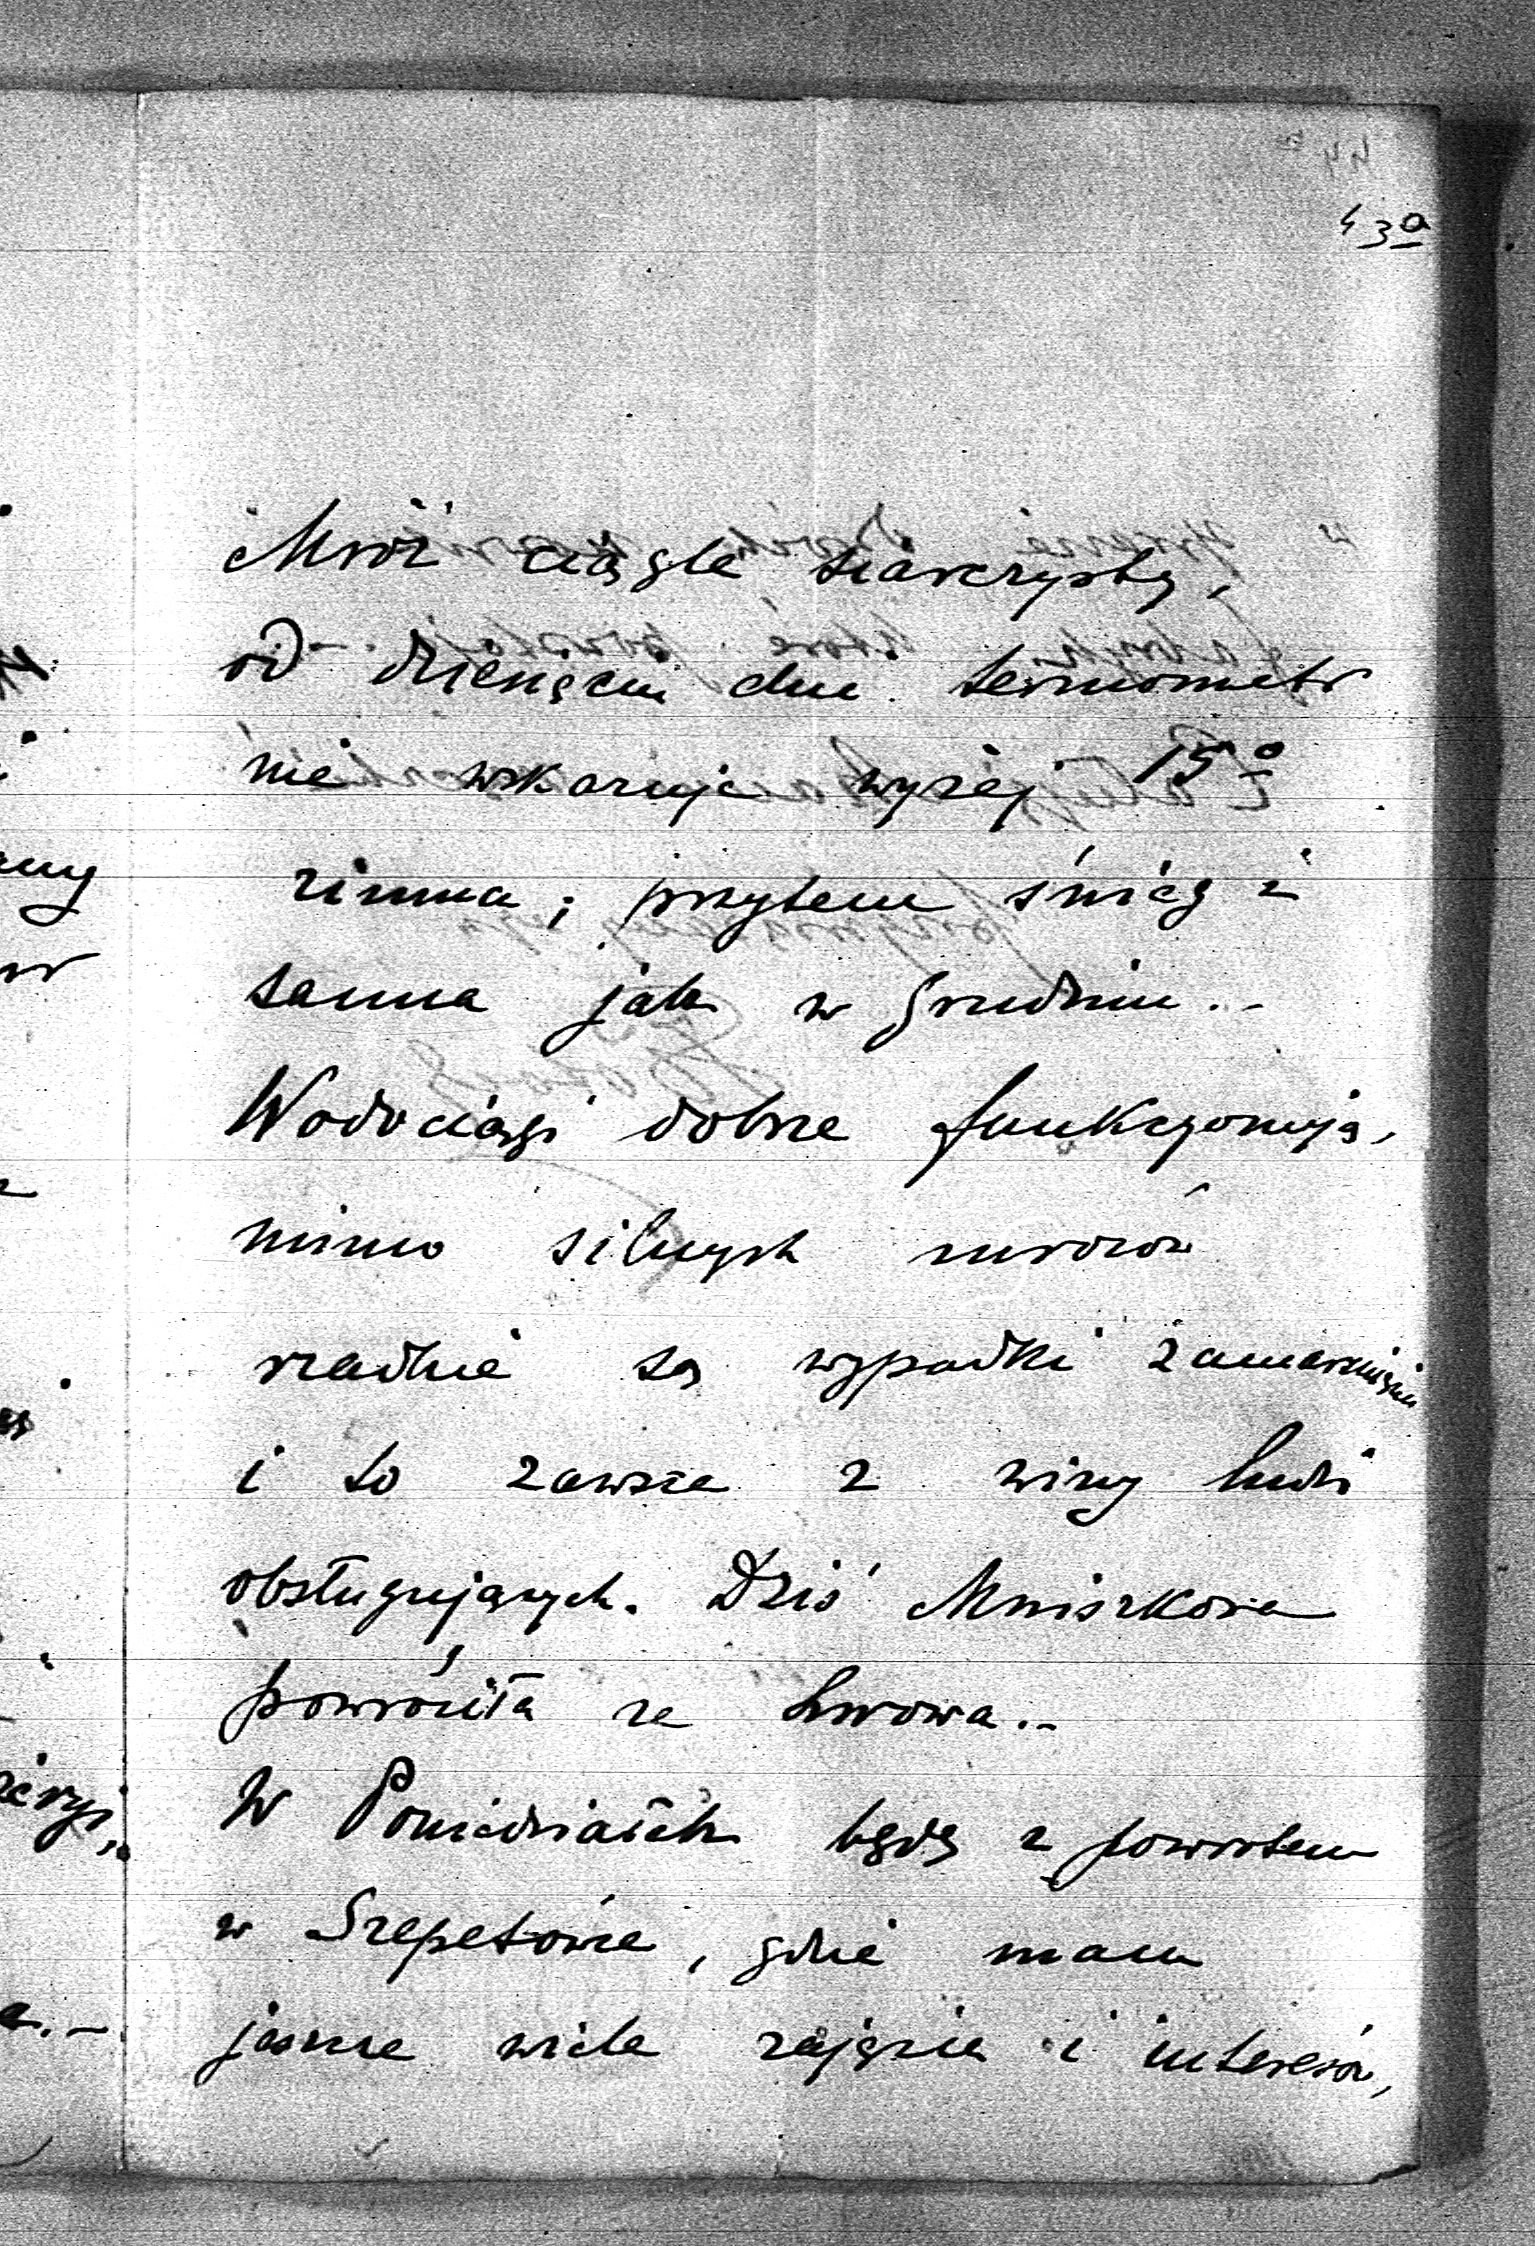 43a
Mróz ciągle siarczysty,
od dziesięciu dni termometr
nie wskazuje wyżej 15°
zimna; przytem śnieg i
sanna jak w Grudniu.-
Wodociągi dobrze funkcyonują,
mimo silnych mrozów
rzadkie są wypadki zamarznięcia
i to zawsze z winy ludzi
obsługujących. Dziś Mniszkowa
powróciła ze Lwowa.-
W Poniedziałek będę z powrotem
w Szepetówce, gdzie mam
jeszcze wiele zajęcia i interesów,